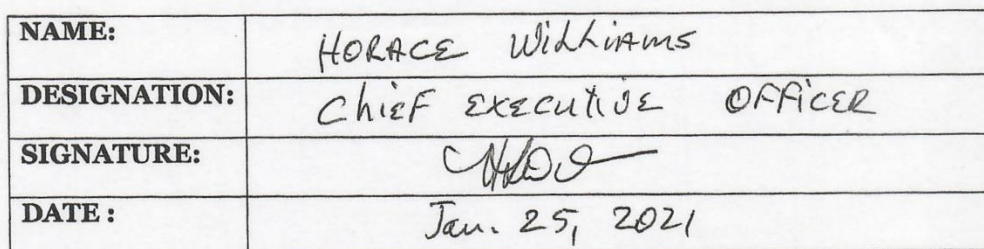 NAME: HORACE WilliAms
DESIGNATION: ChiEF EXECUTIVE OFFiCER
SIGNATURE:
DATE : Jan. 25, 2021